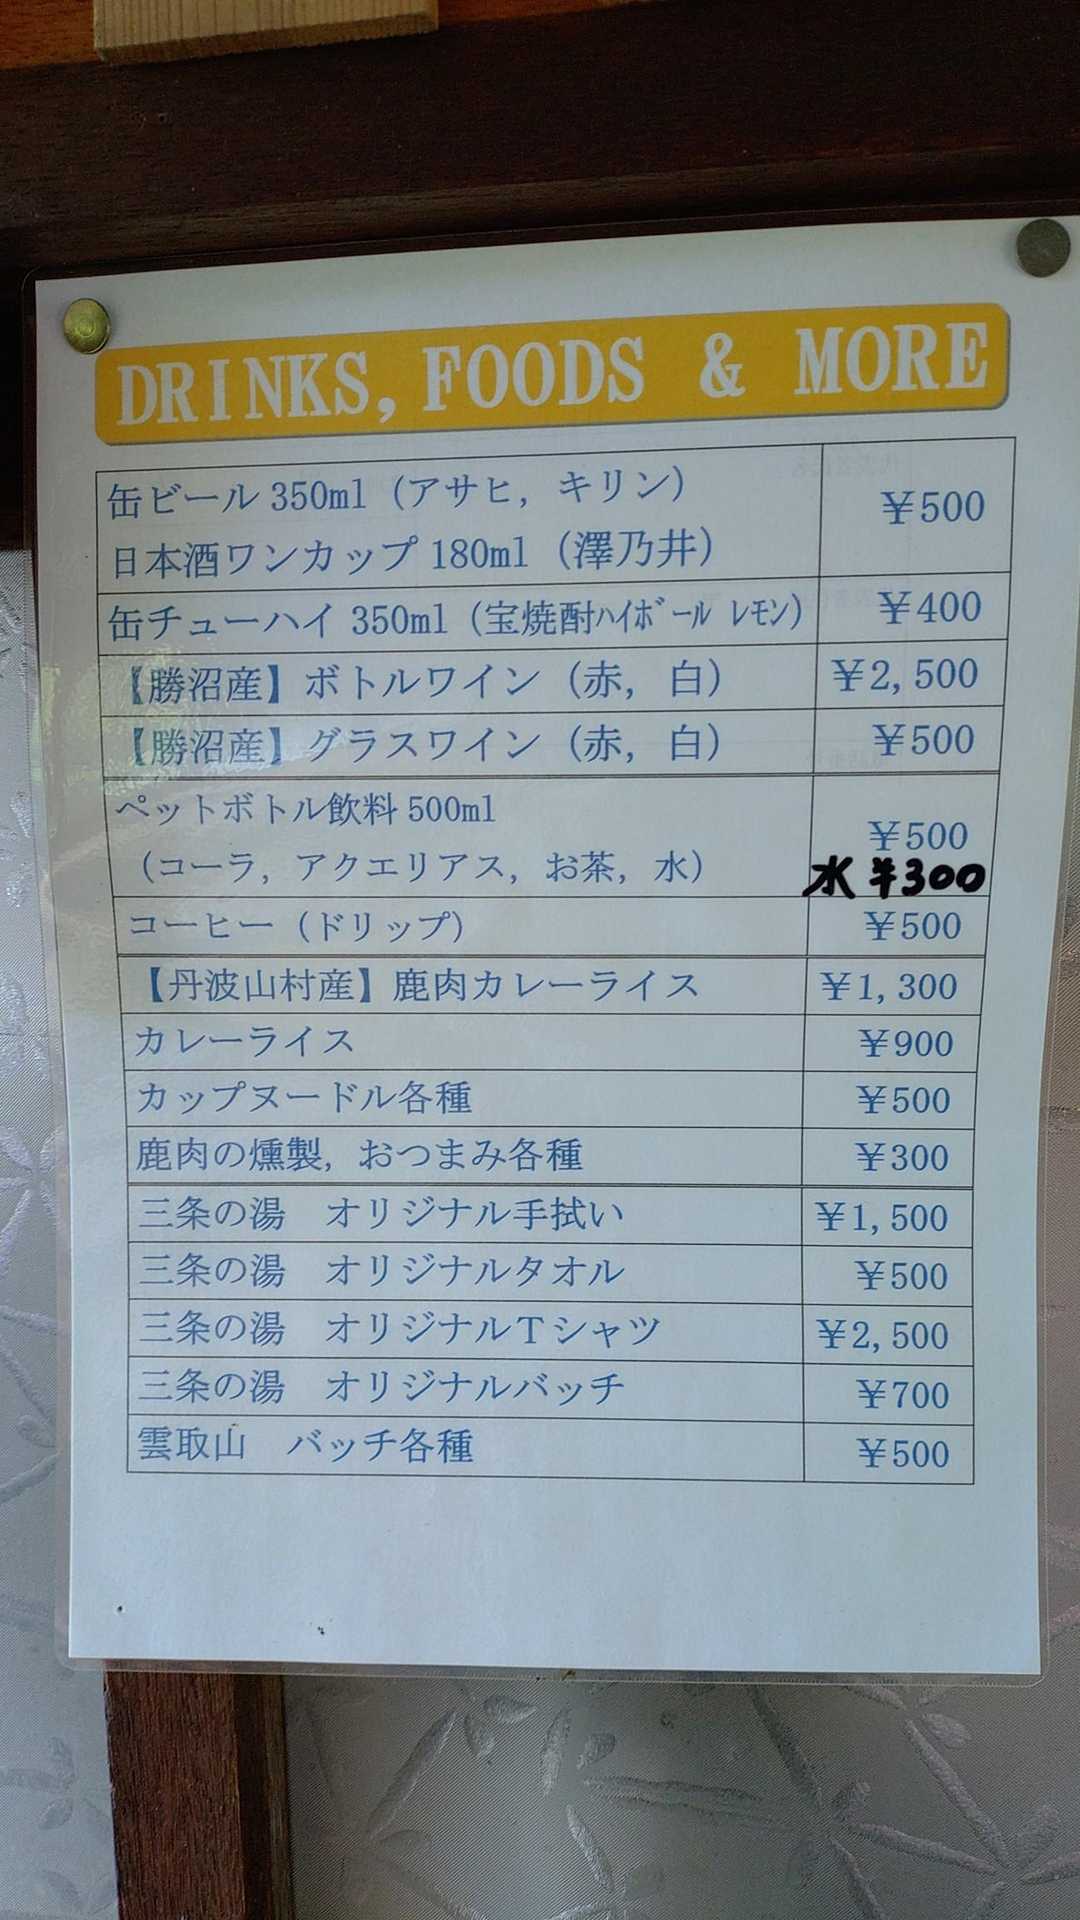 DRINKS, FOODS & MORE
缶ビール 350ml（アサヒ, キリン）
日本酒ワンカップ 180ml（澤乃井） ¥500
缶チューハイ 350ml（宝焼酎ﾊｲﾎﾞｰﾙ ﾚﾓﾝ） ¥400
【勝沼産】ボトルワイン（赤, 白） ¥2,500
【勝沼産】グラスワイン（赤, 白） ¥500
ペットボトル飲料 500ml ¥500
（コーラ, アクエリアス, お茶, 水） 水 ¥300
コーヒー（ドリップ） ¥500
【丹波山村産】鹿肉カレーライス ¥1,300
カレーライス ¥900
カップヌードル各種 ¥500
鹿肉の燻製, おつまみ各種 ¥300
三条の湯　オリジナル手拭い ¥1,500
三条の湯　オリジナルタオル ¥500
三条の湯　オリジナルTシャツ ¥2,500
三条の湯　オリジナルバッチ ¥700
雲取山　バッチ各種 ¥500